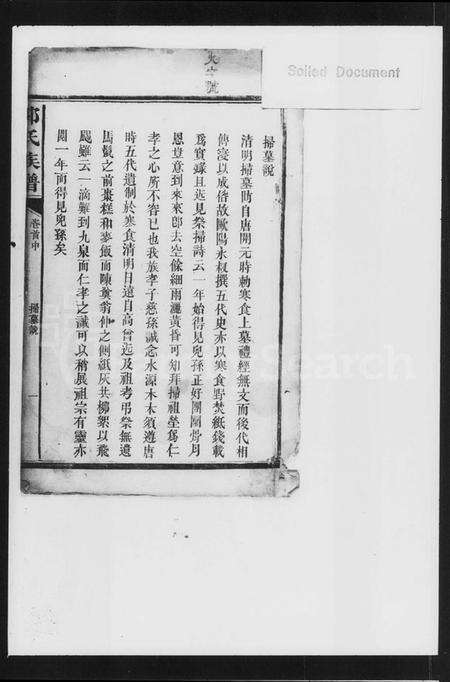 Soiled Document
掃墓說
清明掃墓昉自唐開元時勅寒食上墓禮經無文而後代相
傳寖以成俗故歐陽永叔撰五代史亦以寒食野焚紙錢載
爲實錄且迭見祭掃詩云一年始得見兒孫正好團圞骨月
恩豈意到來來卽去空餘細雨灑黃昏可知拜掃祖塋爲仁
孝之心所不容已也我族孝子慈孫誠念水源木本須遵唐
時五代遺制於寒食清明日遠自高曾迄及祖考弔祭無遺
馬鬛之前棗糕和麥飯而陳奠翁仲之側紙灰共柳絮以飛
颺雖云一滴難到九泉而仁孝之誠可以稍展祖宗有靈亦
閱一年而得見兒孫矣
氏族譜
卷首中
掃墓說
一